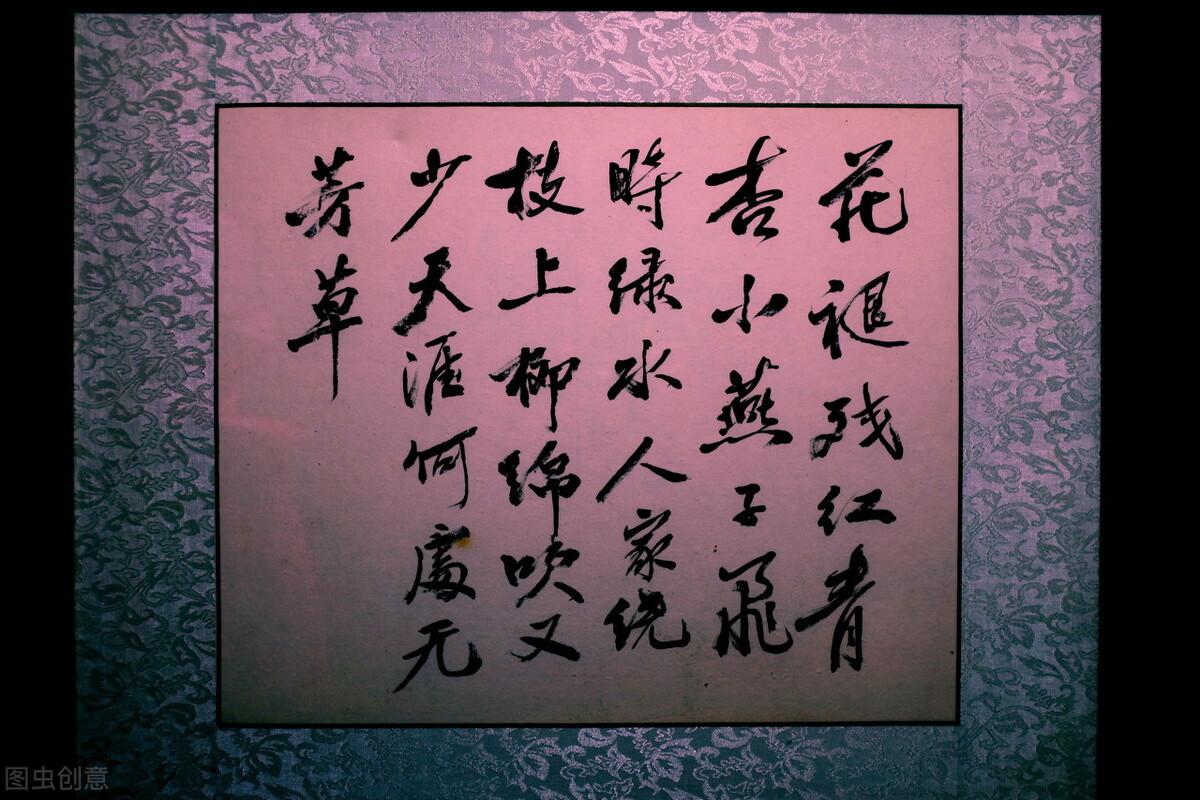 花褪残红青
杏小燕子飛
時绿水人家绕
枝上柳绵吹又
少天涯何處无
芳草
图虫创意